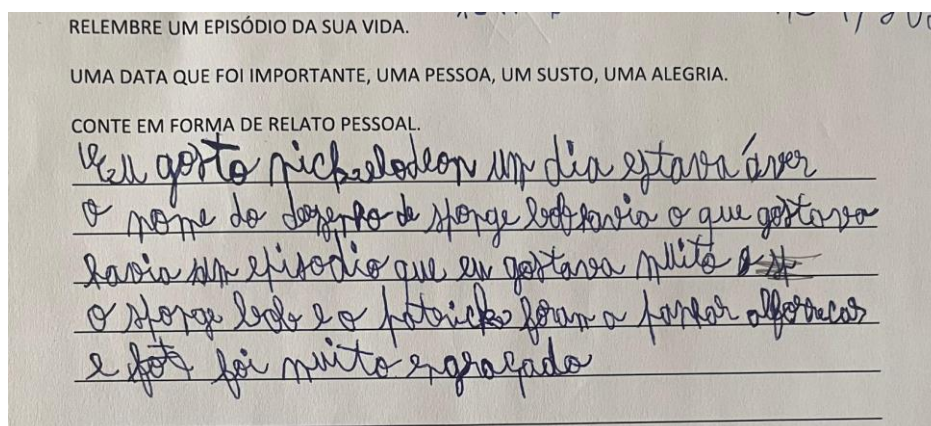 RELEMBRE UM EPISÓDIO DA SUA VIDA.
UMA DATA QUE FOI IMPORTANTE, UMA PESSOA, UM SUSTO, UMA ALEGRIA.
CONTE EM FORMA DE RELATO PESSOAL.
Eu gosto nickelodeon um dia estava á ver
o nome do desenho de sponge bob havia o que gostava
havia um episodio que eu gostava muito
o sponge bob e o patrick foram a panhar alforrecas
e foi muito engraçado